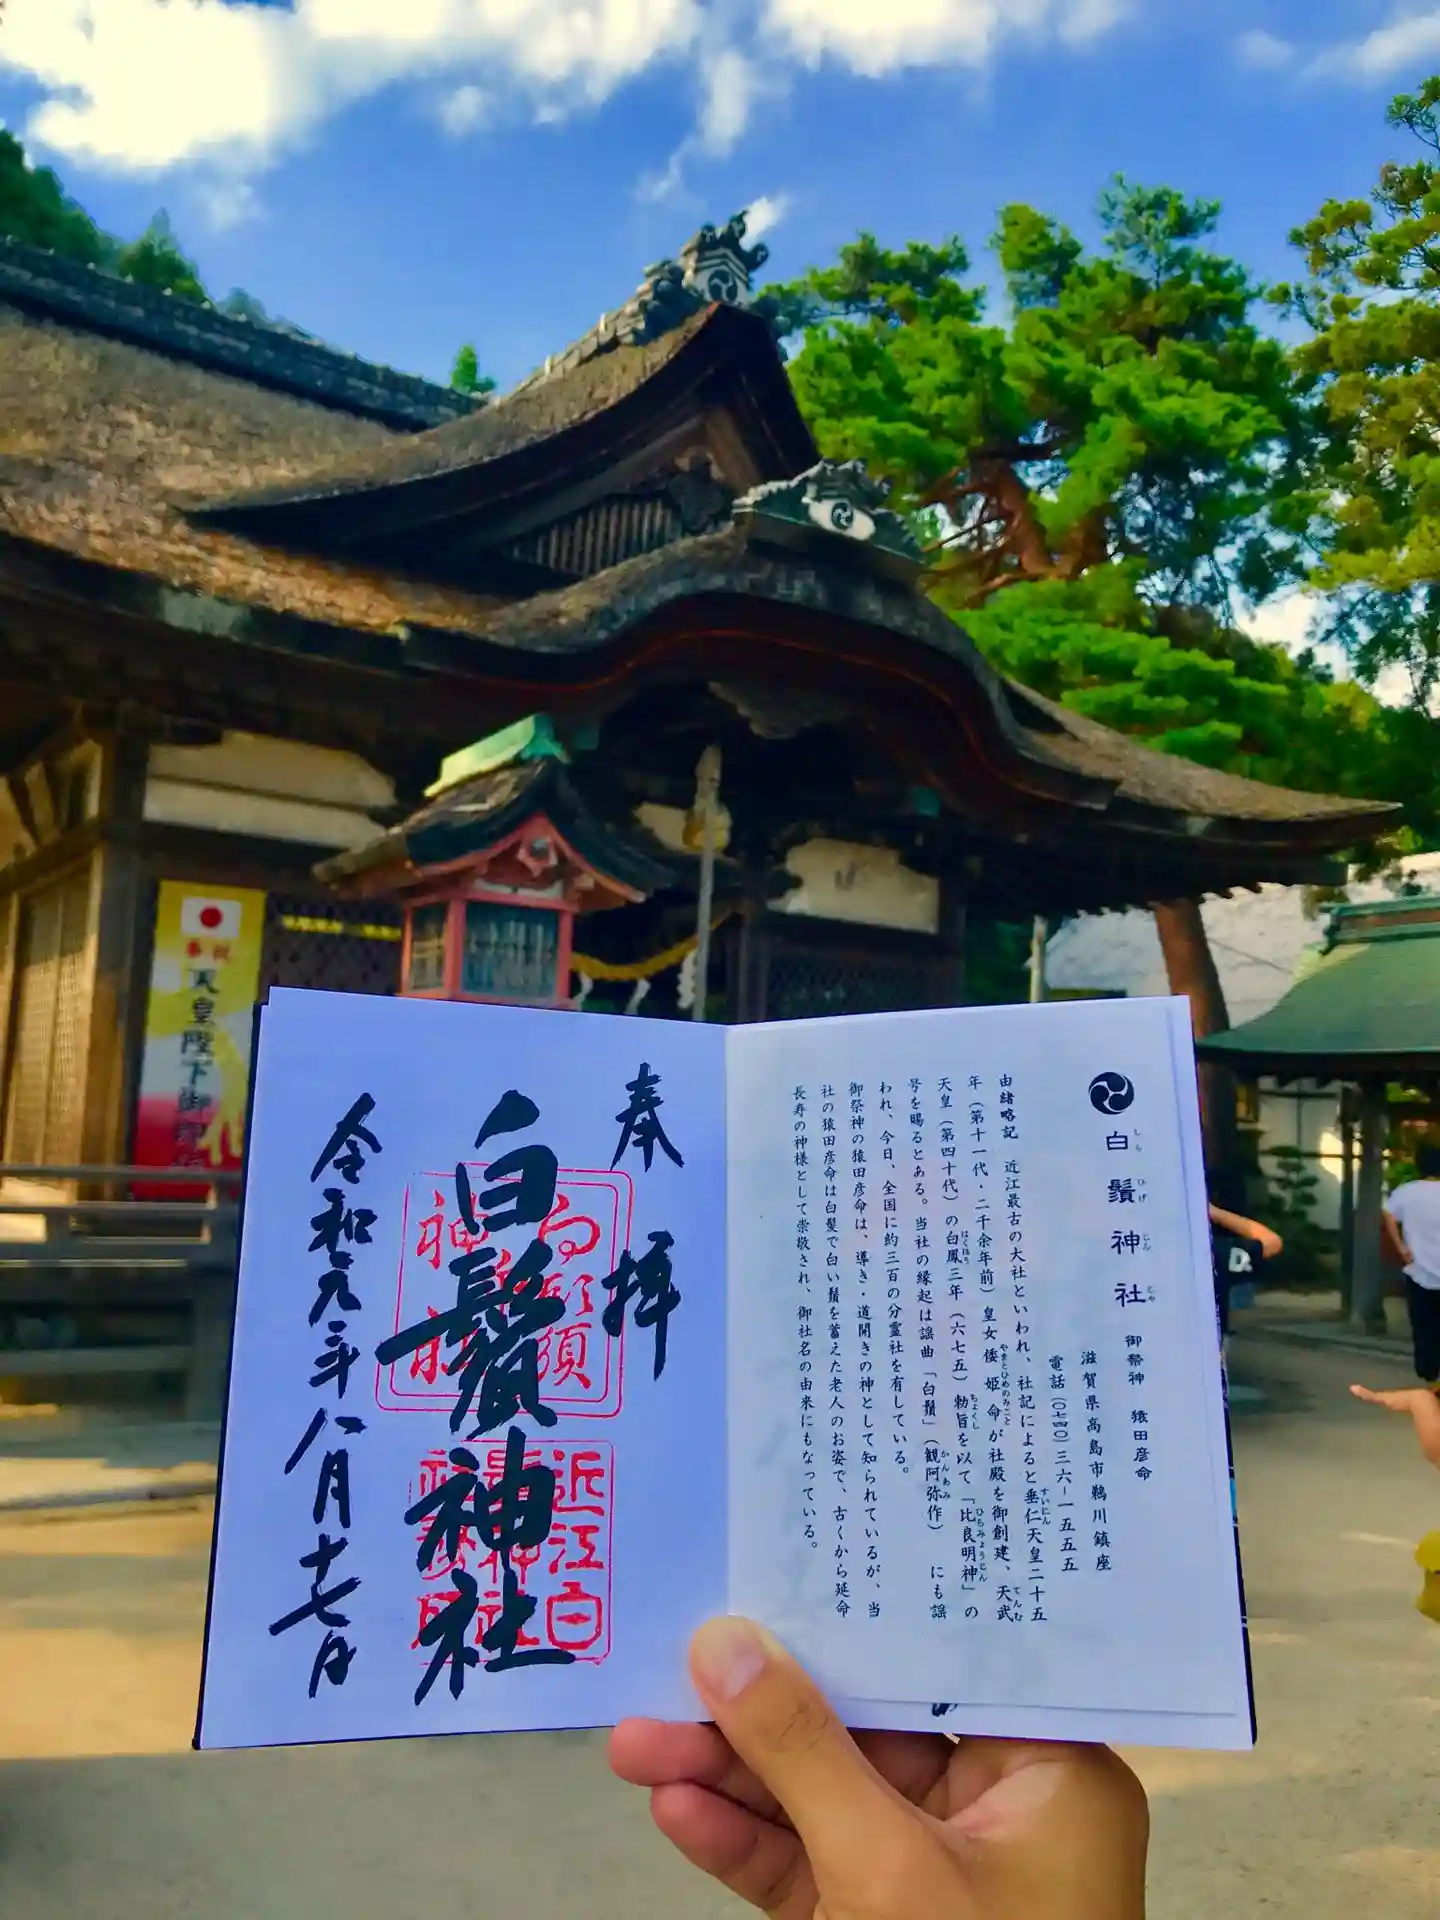 奉祝
天皇陛下御
白鬚神社
しらひげじんじゃ
御祭神 猿田彦命
滋賀県高島市鵜川鎮座
電話(〇七四〇)三六ー一五五五
由緒略記 近江最古の大社といわれ、社記によると垂仁天皇二十五
すいにん
年(第十一代・二千余年前)皇女倭姫命が社殿を御創建、天武
やまとひめのみこと
てんむ
天皇(第四十代)の白鳳三年(六七五)勅旨を以て「比良明神」の
はくほう
ちょくし
ひらみょうじん
号を賜るとある。当社の縁起は謡曲「白鬚」(観阿弥作) にも謡
かんあみ
われ、今日、全国に約三百の分霊社を有している。
御祭神の猿田彦命は、導き・道開きの神として知られているが、当
社の猿田彦命は白髪で白い鬚を蓄えた老人のお姿で、古くから延命
長寿の神様として崇敬され、御社名の由来にもなっている。
奉拝
白鬚神社
近江白
令和元年八月十七日